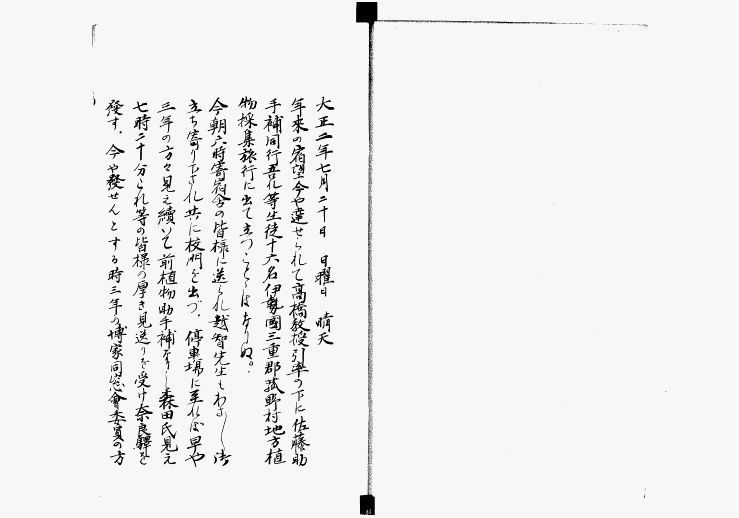 大正二年七月二十日　日曜日　晴天
年来の宿望今や達せられて高橋教授引率の下に佐藤助
手補同行吾れ等生徒十六名伊勢國三重郡菰野村地方植
物採集旅行に出て立つことゝはなりぬ。
今朝六時寄宿舎の皆様に送られ越智先生もわざ〳〵御
立ち寄り下され共に校門を出づ。停車場に至れば早や
三年の方々見え續いて前植物助手補なりし森田氏見え
七時二十分これ等の皆様の厚き見送りを受け奈良驛を
發す。今や發せんとする時三年の博家同窓會委員の方